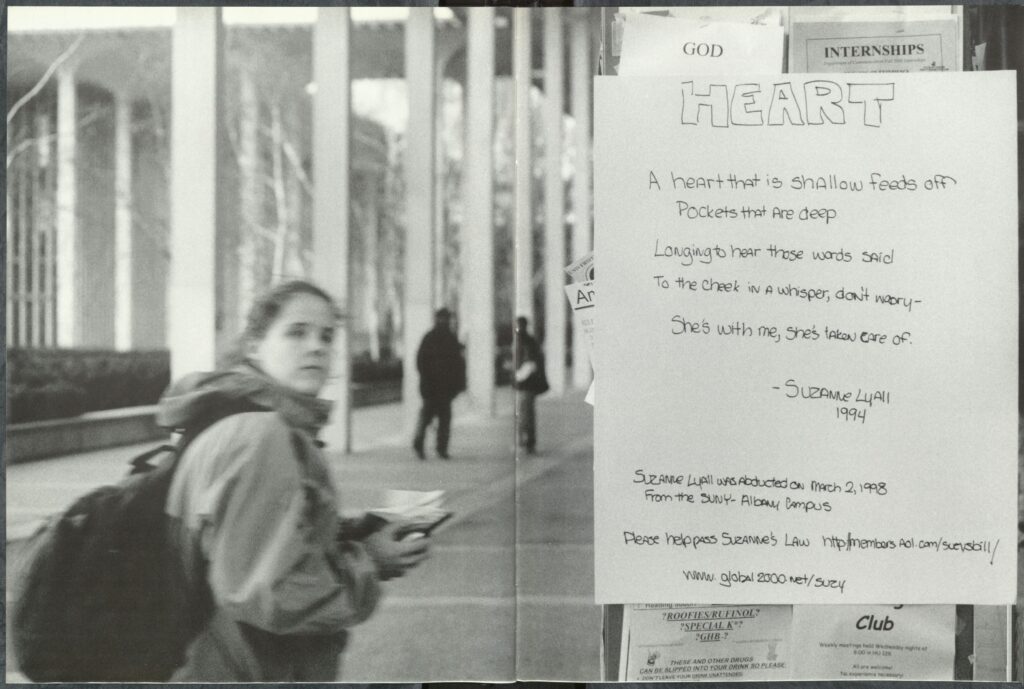 GOD
INTERNSHIPS
HEART
A heart that is shallow feeds off
Pockets that are deep
Longing to hear those words said
To the cheek in a whisper, don't worry-
She's with me, she's taken care of.
- Suzanne Lyall
1994
Suzanne Lyall was abducted on March 2, 1998
From the SUNY- Albany Campus
Please help pass Suzanne's Law http//members.aol.com/suzysbill/
www.global2000.net/suzy
?ROOFIES/RUFINOL?
?SPECIAL K"?
?GHB-?
THESE AND OTHER DRUGS
CAN BE SLIPPED INTO YOUR DRINK SO PLEASE:
• DON'T LEAVE YOUR DRINK UNATTENDED
Club
Weekly meetings held Wednesday nights at
All are welcome!
No experience necessary!